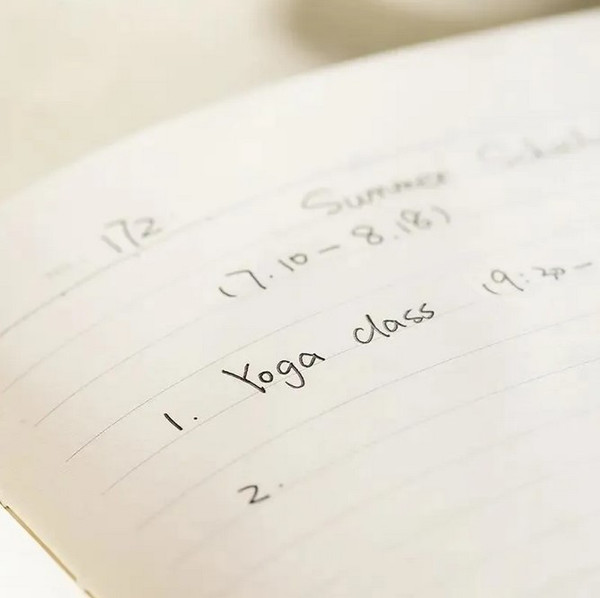 172 Summer
(7.10 - 8.18)
1. Yoga class (9:30 -
2.